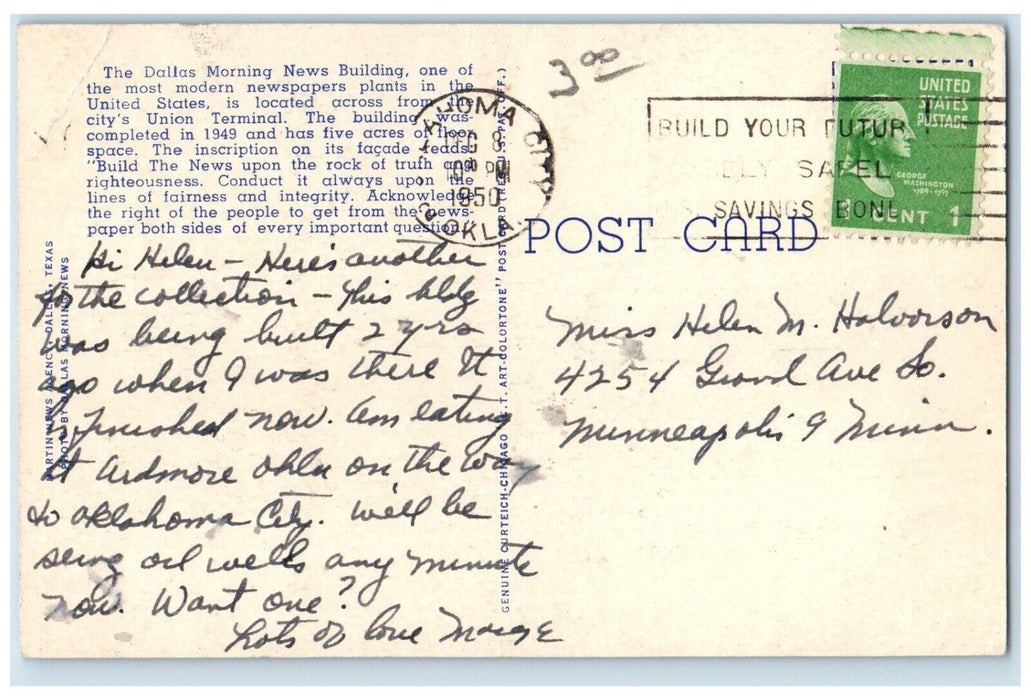 The Dallas Morning News Building, one of
the most modern newspapers plants in the
United States, is located across from the
city's Union Terminal. The building was
completed in 1949 and has five acres of floor
space. The inscription on its façade reads:
"Build The News upon the rock of truth and
righteousness. Conduct it always upon the
lines of fairness and integrity. Acknowledge
the right of the people to get from the news-
paper both sides of every important question.
3 00
OKLAHOMA CITY
8
PM
1950
OKLA.
BUILD YOUR FUTUR
SAFEL
SAVINGS BON
UNITED
STATES
POSTAGE
GEORGE
WASHINGTON
1789-1797
1 CENT 1
POST CARD
Hi Helen – Here's another
for the collection – This bldg
was being built 2 yrs
ago when I was there It
is finished now. Am eating
at Ardmore Okla on the way
to Oklahoma City. We'll be
seing oil wells any minute
now. Want one?
Lots of love Marge
Miss Helen M. Halvorson
4254 Grand Ave So.
Minneapolis 9 Minn.
MARTIN NEWS AGENCY, DALLAS, TEXAS
PHOTO BY DALLAS MORNING NEWS
GENUINE CURTEICH-CHICAGO "C. T. ART-COLORTONE" POST CARD (REG. U. S. PAT. OFF.)